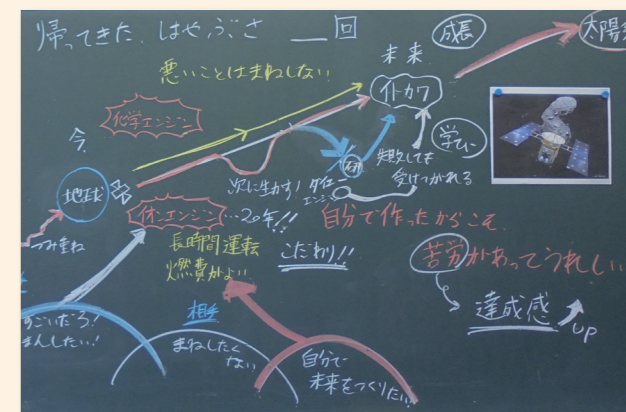 帰ってきた はやぶさ __回
成長
太陽
未来
悪いことはまねしない
イトカワ
化学エンジン
今
学び
地球
失敗しても
受けつがれる
次に生かす!
イオンエンジン…20年!!
自分で作ったからこそ
つみ重ね
長時間運転
燃費がよい
こだわり!!
苦労があってうれしい
達成感 up
すごいだろ!
まんしたい!
相手
まねしたく
ない
自分で
未来をつくりたい